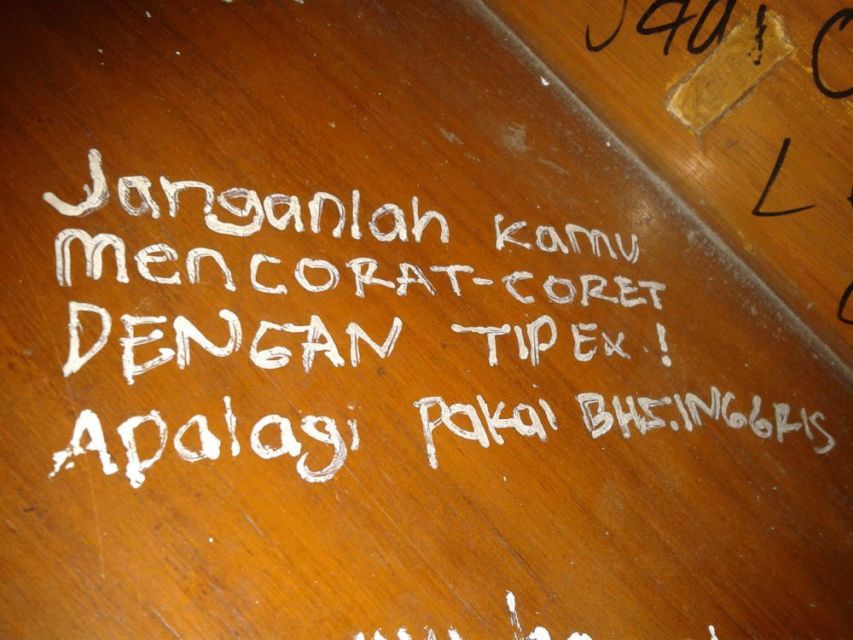 Janganlah kamu
mencorat-coret
DENGAN TIPEx.!
Apalagi pakai BHS.INGGRIS
Jadi